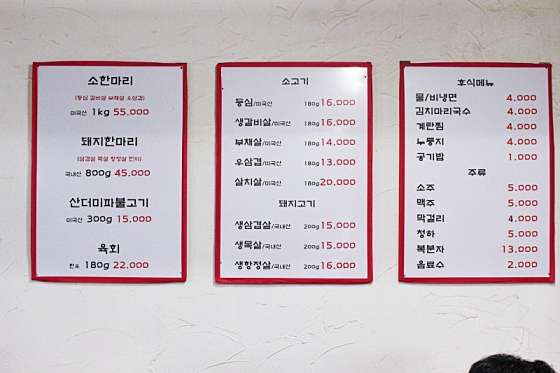 소한마리
(등심 갈비살 부채살 우삼겹)
미국산 1kg 55,000
돼지한마리
(삼겹살 목살 항정살 껍데기)
국내산 800g 45,000
산더미파불고기
미국산 300g 15,000
육회
한우 180g 22,000
소고기
등심/미국산 180g 16,000
생갈비살/미국산 180g 16,000
부채살/미국산 180g 14,000
우삼겹/미국산 180g 13,000
살치살/미국산 180g 20,000
돼지고기
생삼겹살/국내산 200g 15,000
생목살/국내산 200g 15,000
생항정살/국내산 200g 16,000
후식메뉴
물/비냉면 4,000
김치마리국수 4,000
계란찜 4,000
누룽지 4,000
공기밥 1,000
주류
소주 5,000
맥주 5,000
막걸리 4,000
청하 5,000
복분자 13,000
음료수 2,000